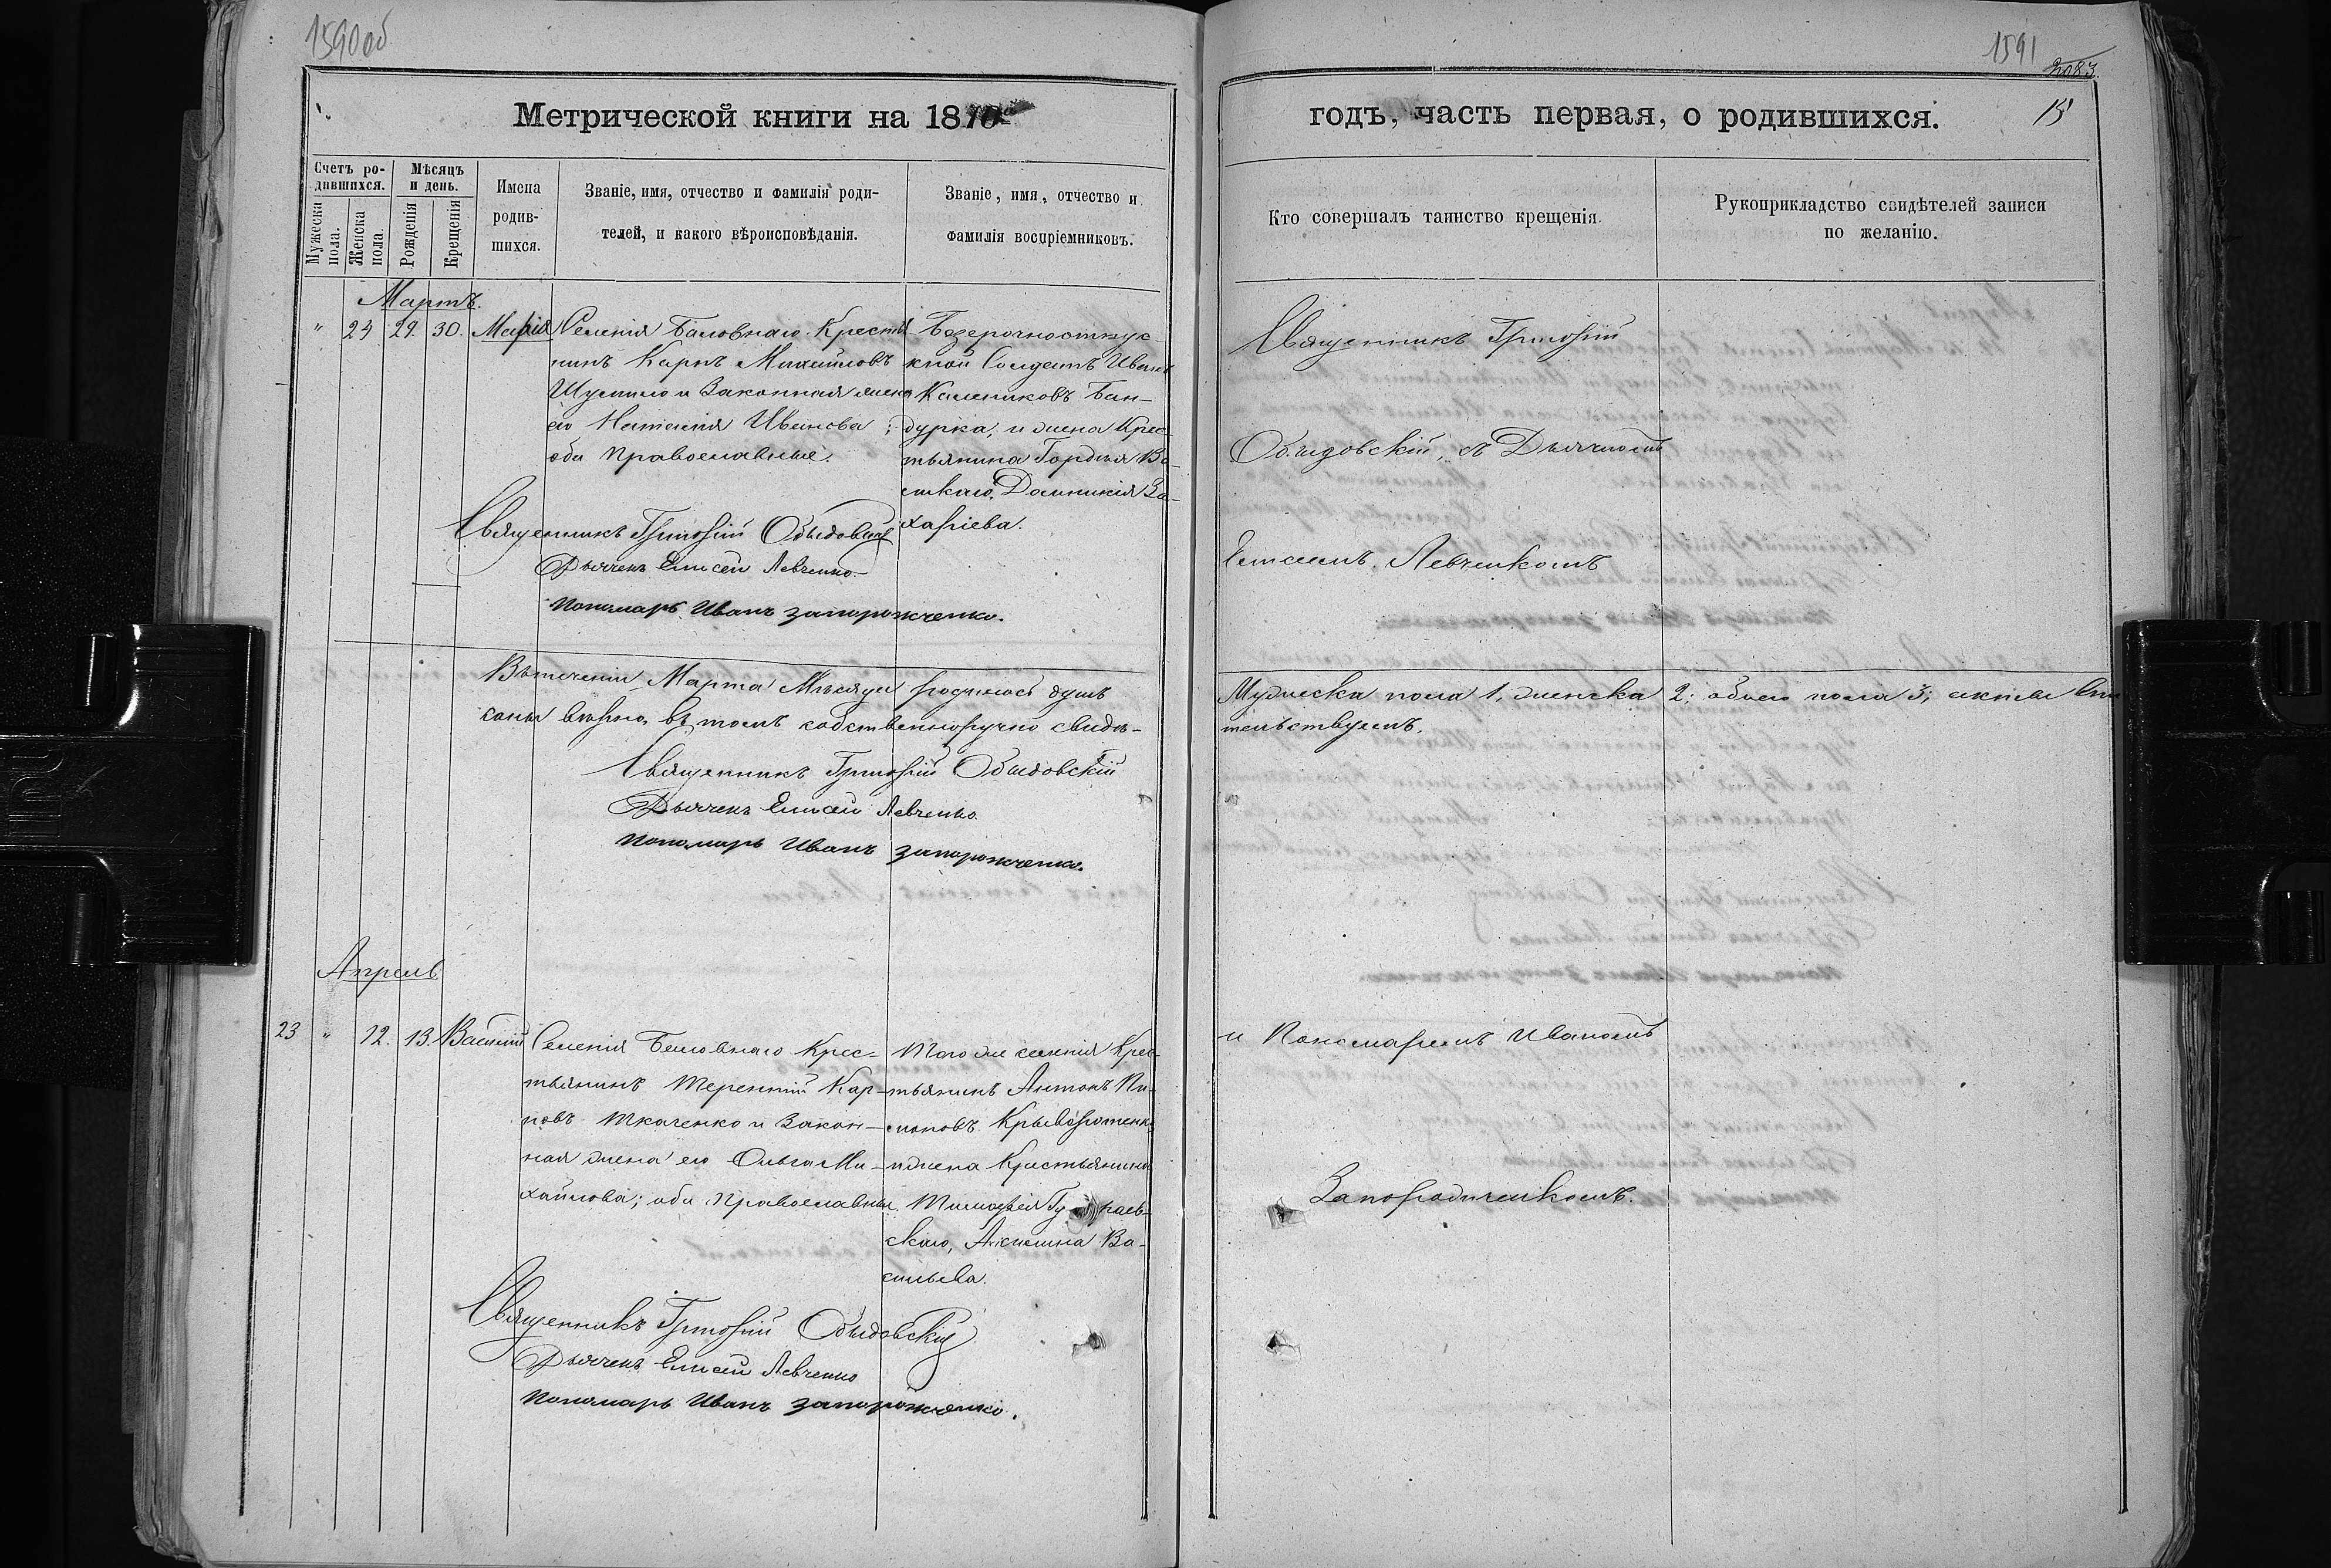 1590об
Метрической книги на 1870
Счетъ ро-
дившихся.
Мужеска пола.
Женска пола.
Мѣсяцъ
и день.
Рожденія
Крещенія
Имена
родив-
шихся.
Званіе, имя, отчество и фамилія роди-
телей, и какого вѣроисповѣданія.
Званіе, имя, отчество и
фамилія воспріемниковъ.
Мартъ.
" 24 29. 30. Марія
Селенія Баловнаго Крестья
нинъ Карпъ Михайловъ
Шумило и Законная жена
его Наталія Иванова;
оба Православные.
Безсрочноотпус-
кной Солдатъ Иванъ
Калениковъ Бан-
дурка, и жена Крес-
тьянина Гордѣя
Домникія За-
харіева.
Священникъ Григорій Обыдовскій
Дьячекъ Елисей Левченко
Пономарь Иванъ Запорожченко.
Въ теченіи Марта Мѣсяца родилось душъ
саны вѣрно, въ томъ собственноручно свидѣ-
Священникъ Григорій Обыдовскій
Дьячекъ Елисей Левченко.
Пономарь Иванъ Запорожченко.
Апрель
23 " 12. 13. Василій
Селенія Баловнаго Крес-
тьянинъ Терентій Кар-
повъ Ткаченко и Закон-
ная жена его Ольга Ми-
хайлова; оба Православные.
Того же селенія Крес-
тьянинъ Антонъ Пи-
моновъ
и жена Крестьянина
Тимофея
скаго, Акилина Ва-
сильева.
Священникъ Григорій Обыдовскій
Дьячекъ Елисей Левченко
Пономарь Иванъ Запорожченко.
1591
2083.
15
годъ, часть первая, о родившихся.
Кто совершалъ таинство крещенія.
Рукоприкладство свидѣтелей записи
по желанію.
Священникъ Григорій
Обыдовскій, съ Дьячкомъ
Елисеемъ Левченкомъ
Мужеска пола 1, женска 2; обоего пола 3; акты впи
тельствуемъ.
и Пономаремъ Иваномъ
Запорожченкомъ.